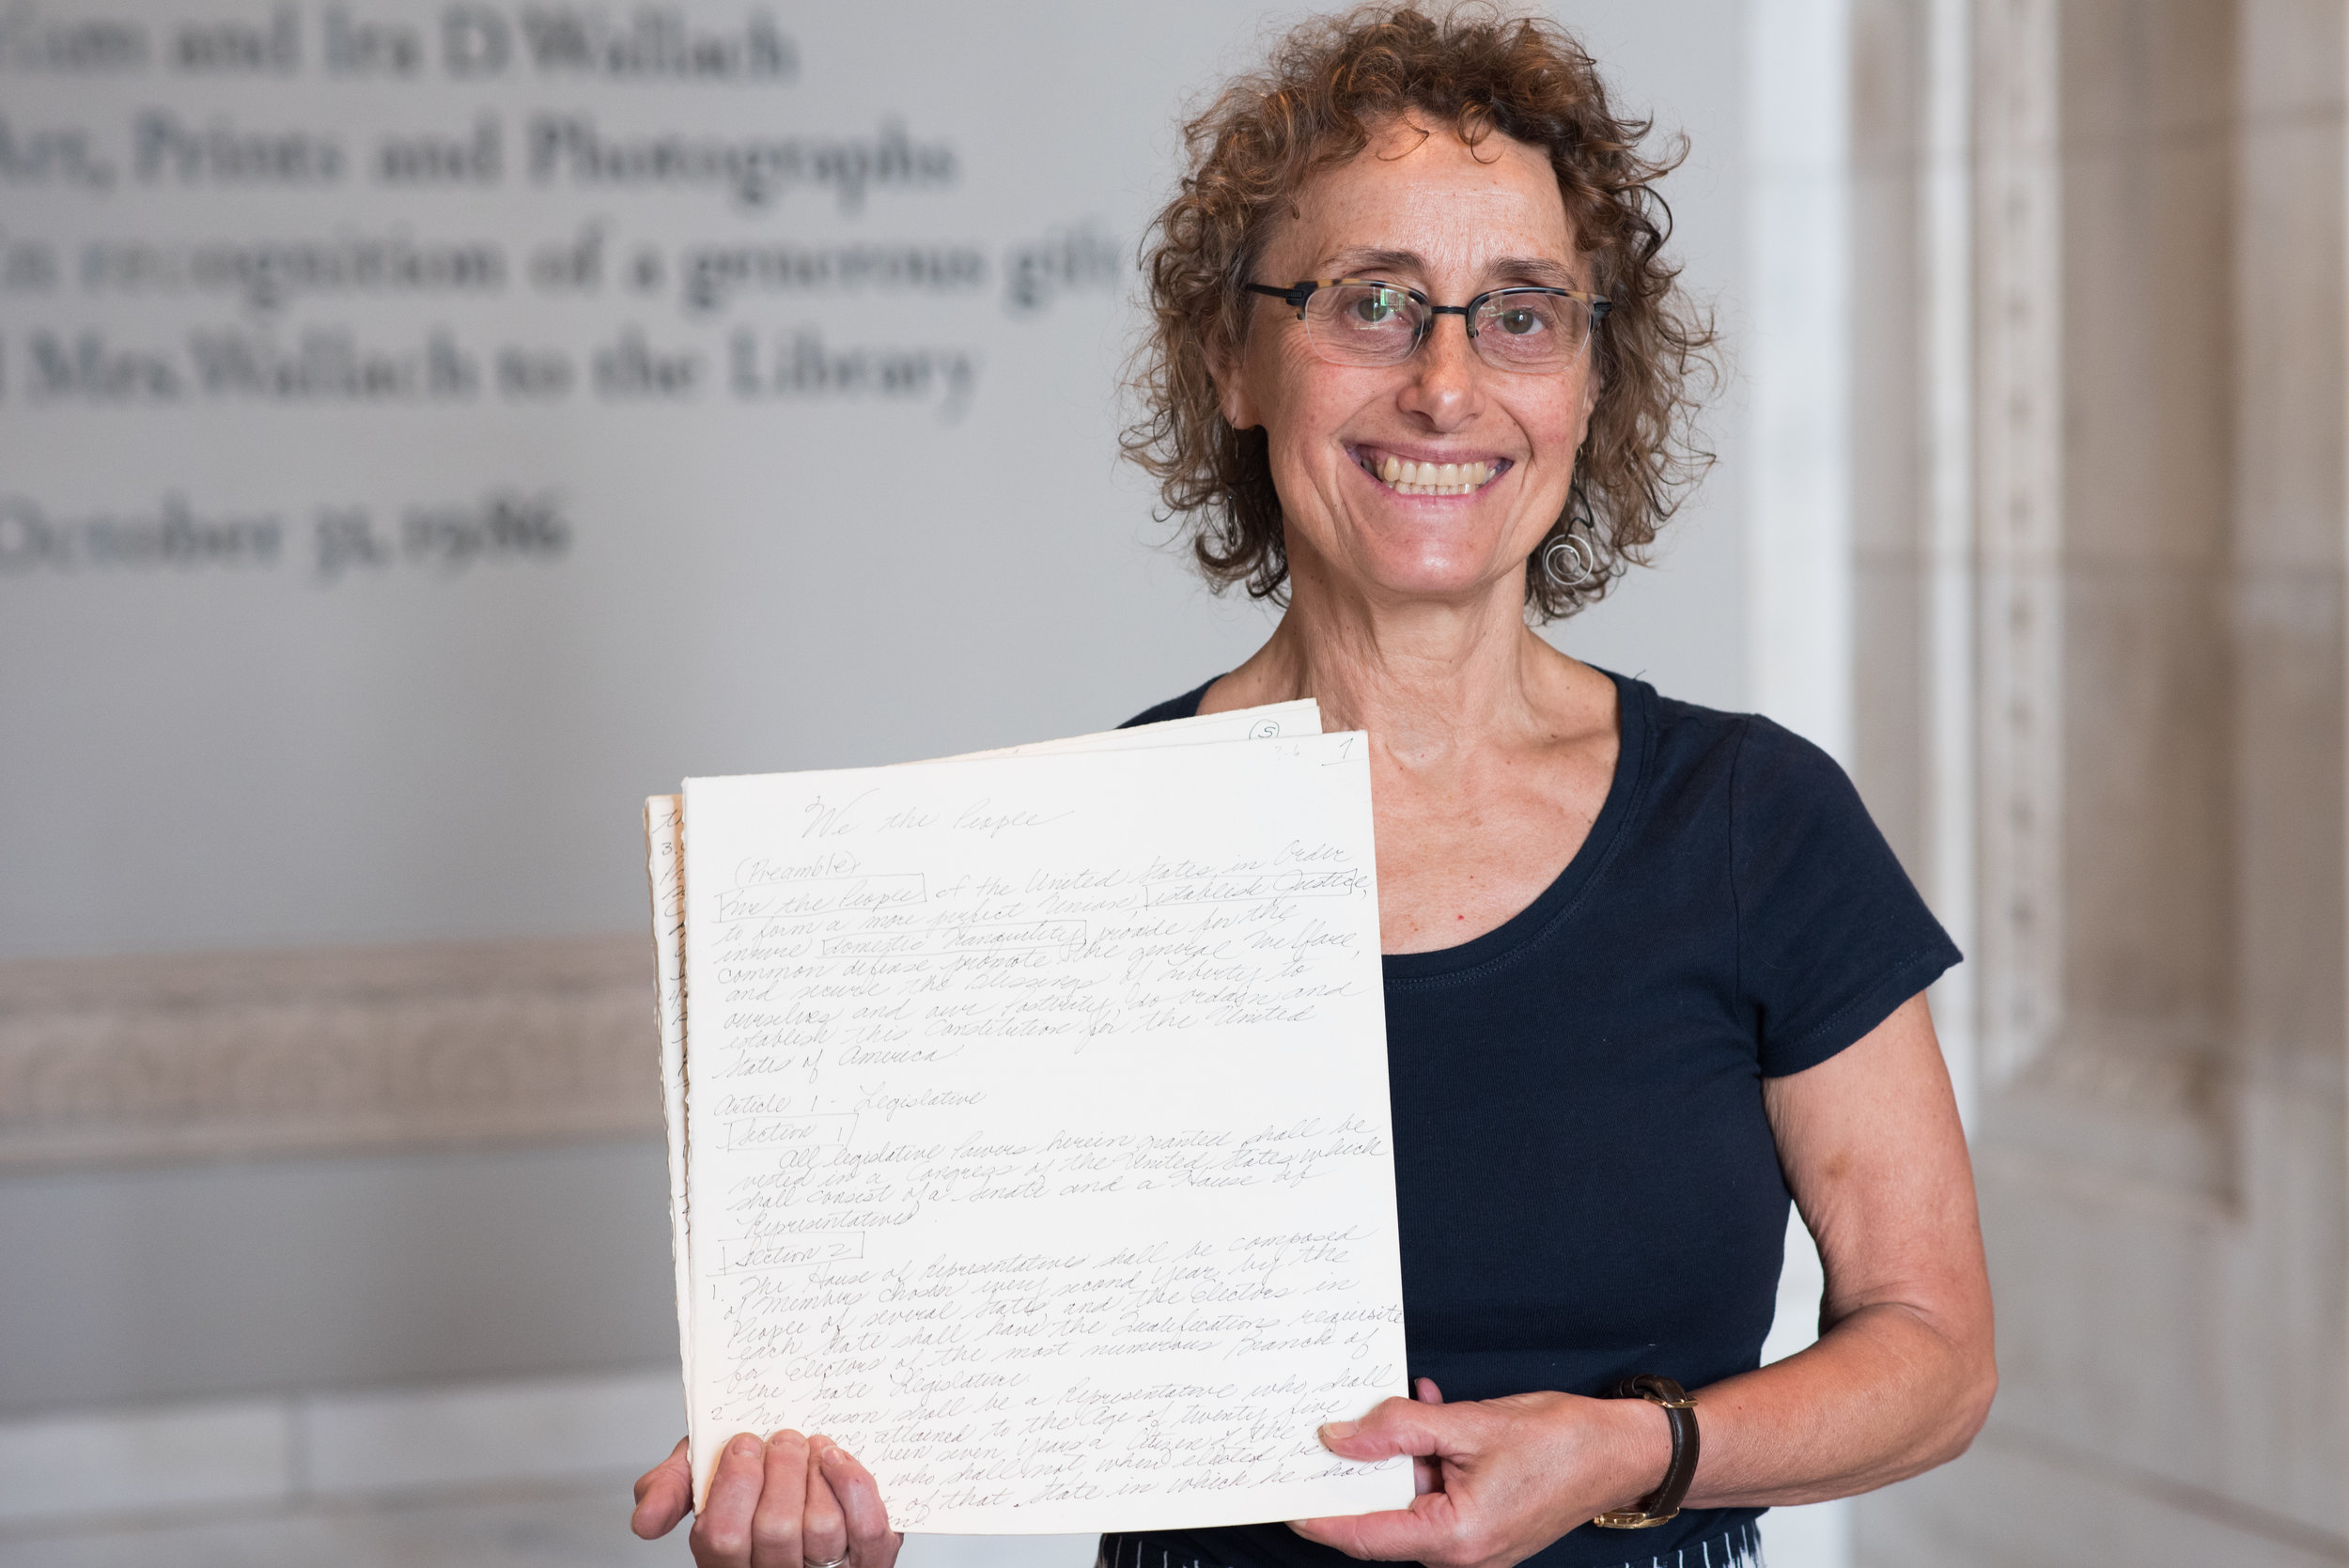 and Ira D Wallach
Art, Prints and Photographs
in recognition of a generous gift
Mrs. Wallach to the Library
October 31, 1986
S
7
We the People
(Preamble)
We the People of the United States, in Order
to form a more perfect Union, establish Justice,
insure domestic Tranquility, provide for the
common defense, promote the general Welfare,
and secure the Blessings of Liberty to
ourselves and our Posterity, do ordain and
establish this Constitution for the United
States of America.
Article 1 - Legislative
Section 1
All legislative Powers herein granted shall be
vested in a Congress of the United States which
shall consist of a Senate and a House of
Representatives.
Section 2
1. The House of Representatives shall be composed
of Members chosen every second Year by the
People of several States, and the Electors in
each State shall have the Qualifications requisite
for Electors of the most numerous Branch of
the State Legislature.
2. No Person shall be a Representative who shall
attained to the Age of twenty five
been seven Years a Citizen of the
who shall not when elected be
of that State in which he shall
3.